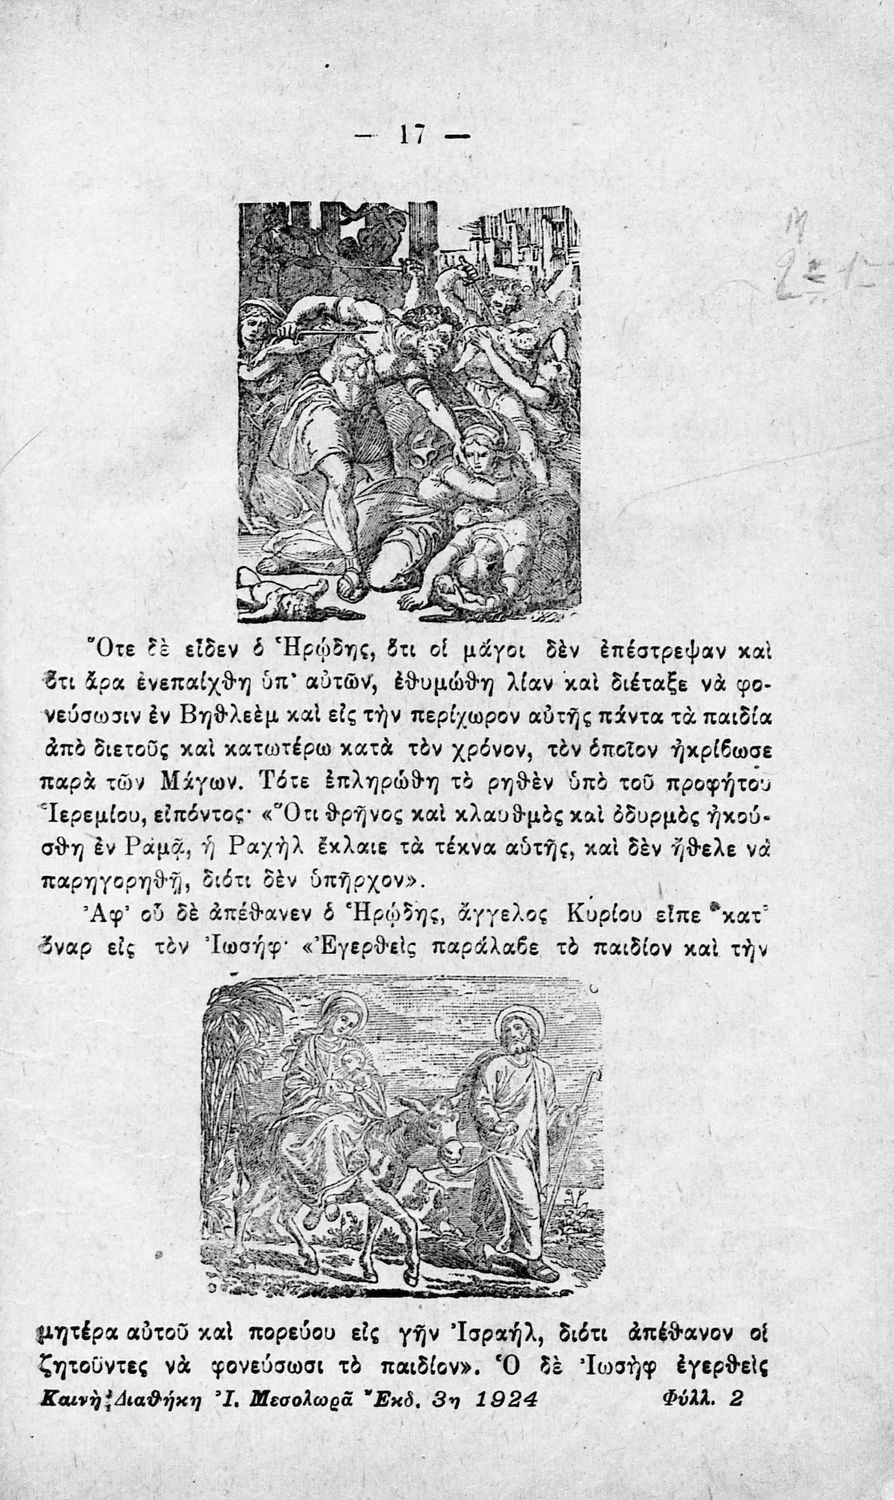 — 17 —
Ὅτε δὲ εἶδεν ὁ Ἡρῴδης, ὅτι οἱ μάγοι δὲν ἐπέστρεψαν καὶ
ὅτι ἄρα ἐνεπαίχθη ὑπ' αὐτῶν, ἐθυμώθη λίαν καὶ διέταξε νὰ φο-
νεύσωσιν ἐν Βηθλεὲμ καὶ εἰς τὴν περίχωρον αὐτῆς πάντα τὰ παιδία
ἀπὸ διετοῦς καὶ κατωτέρω κατὰ τὸν χρόνον, τὸν ὁποῖον ἠκρίβωσε
παρὰ τῶν Μάγων. Τότε ἐπληρώθη τὸ ρηθὲν ὑπὸ τοῦ προφήτου
Ἱερεμίου, εἰπόντος· «Ὅτι θρῆνος καὶ κλαυθμὸς καὶ ὀδυρμὸς ἠκού-
σθη ἐν Ραμᾷ, ἡ Ραχὴλ ἔκλαιε τὰ τέκνα αὑτῆς, καὶ δὲν ἤθελε νὰ
παρηγορηθῇ, διότι δὲν ὑπῆρχον».
Ἀφ' οὗ δὲ ἀπέθανεν ὁ Ἡρῴδης, ἄγγελος Κυρίου εἶπε κατ'
ὄναρ εἰς τὸν Ἰωσήφ· «Ἐγερθεὶς παράλαβε τὸ παιδίον καὶ τὴν
μητέρα αὐτοῦ καὶ πορεύου εἰς γῆν Ἰσραήλ, διότι ἀπέθανον οἱ
ζητοῦντες νὰ φονεύσωσι τὸ παιδίον». Ὁ δὲ Ἰωσὴφ ἐγερθεὶς
Καινὴ Διαθήκη Ἰ. Μεσολωρᾶ Ἔκδ. 3η 1924 Φύλλ. 2